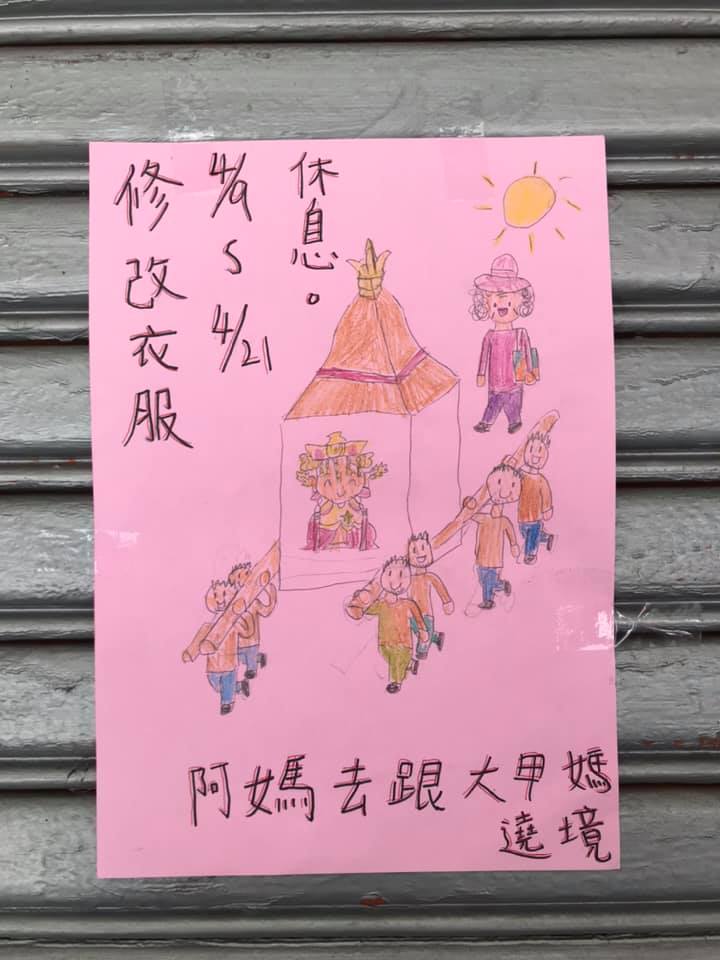 修改衣服
4/9~4/21
休息。
阿媽去跟大甲媽
遶境